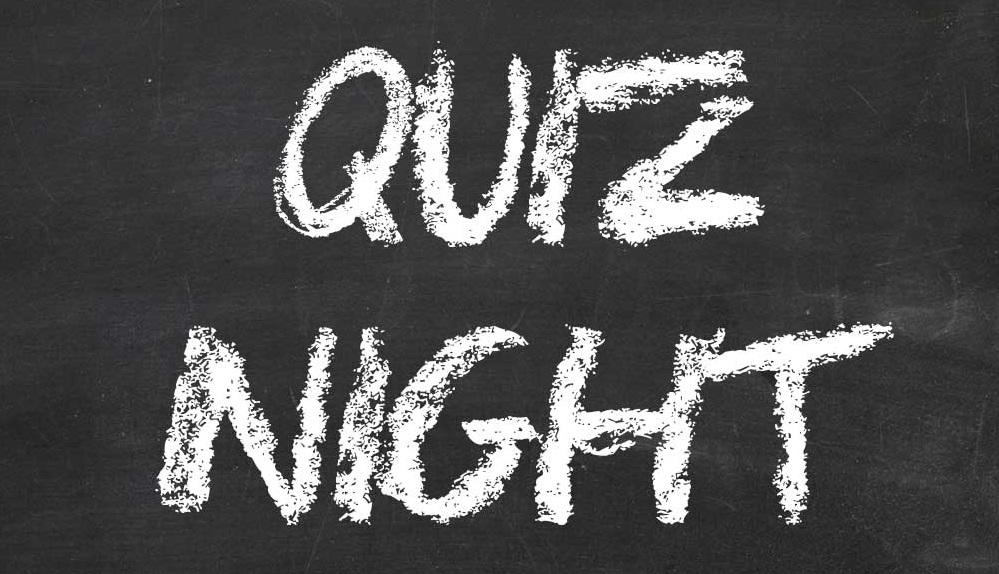 QUIZ
NIGHT